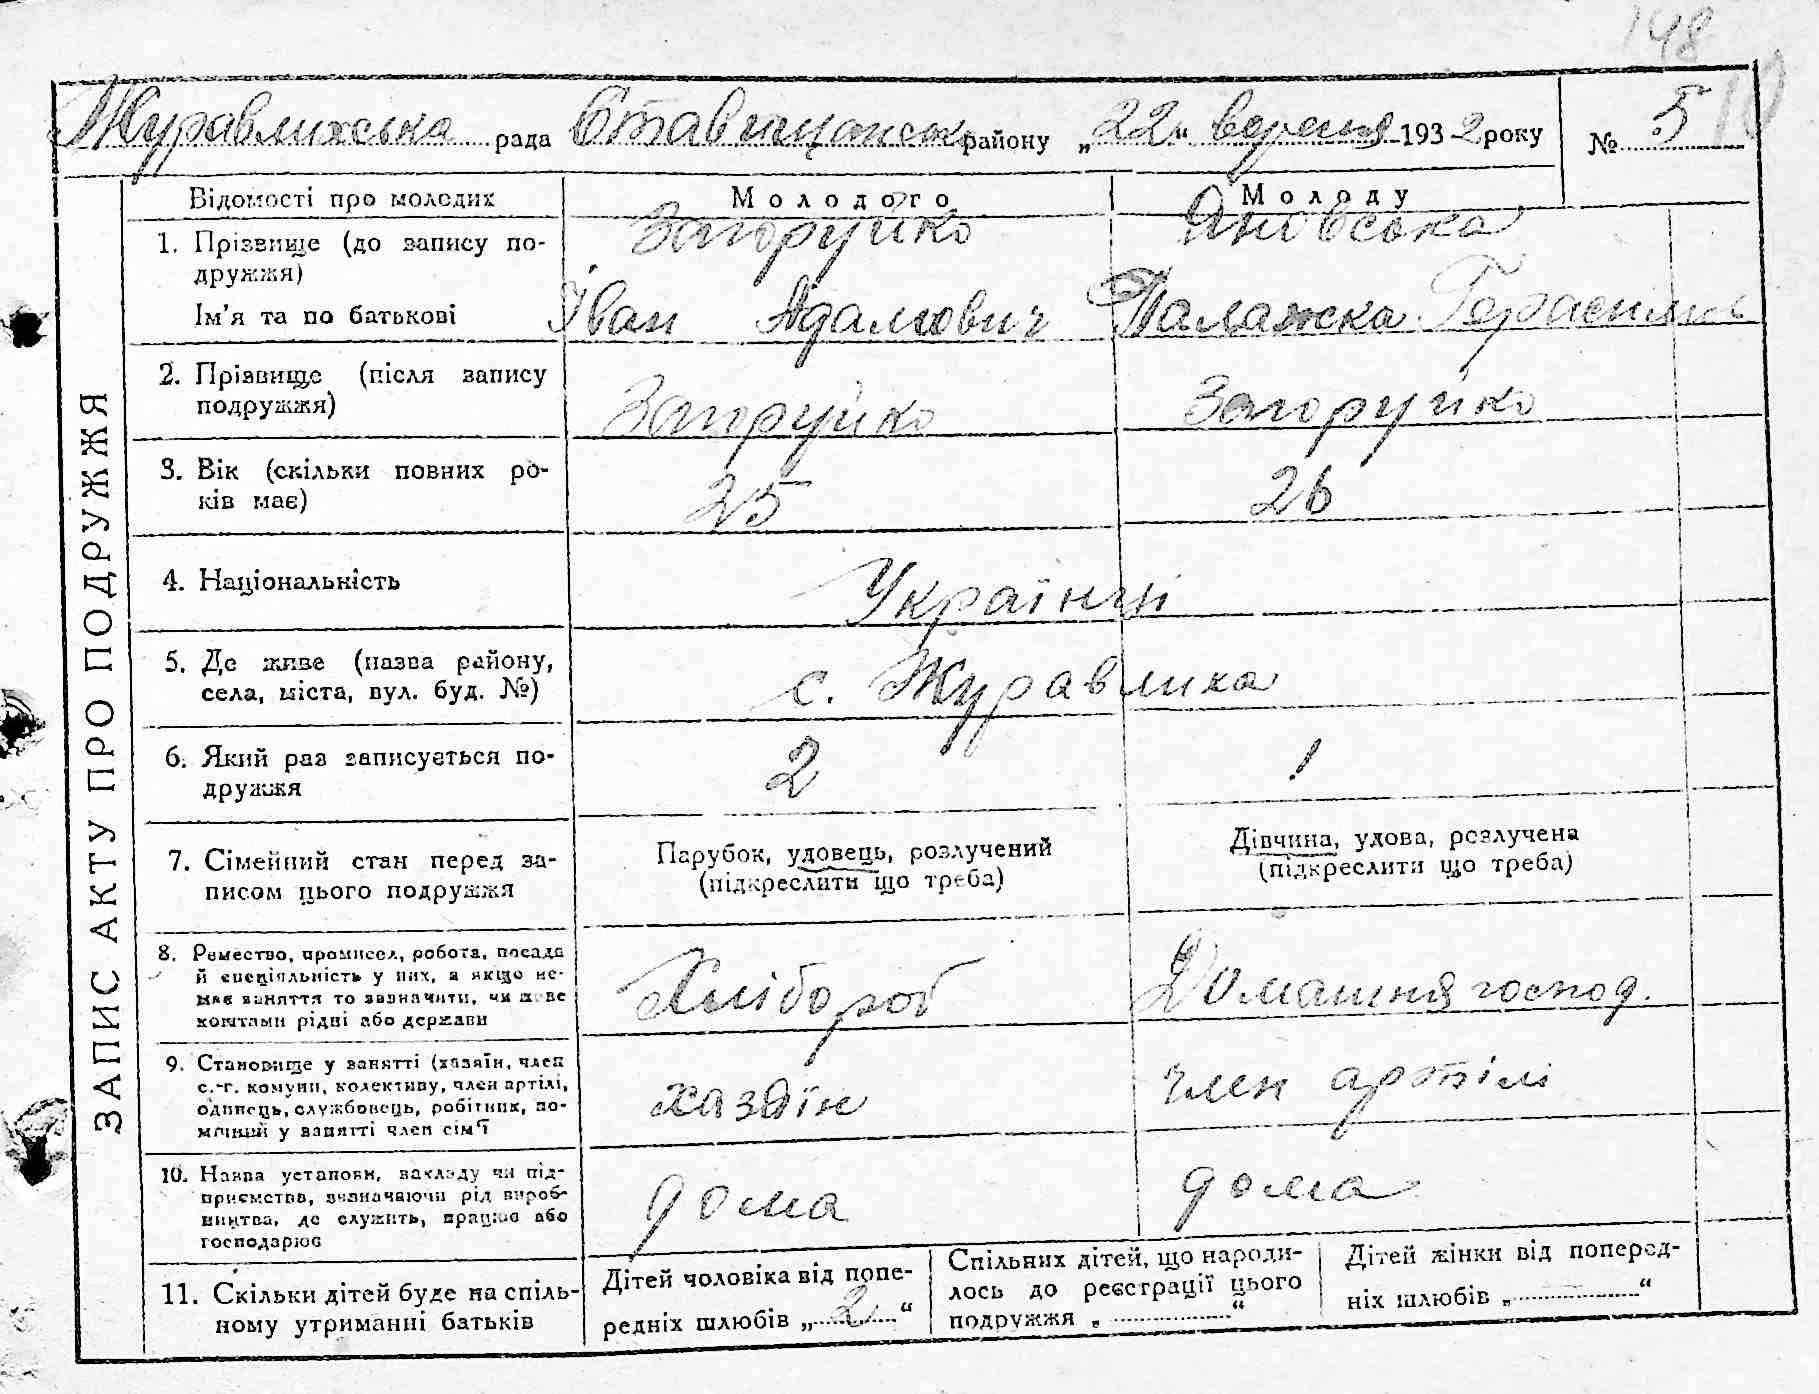 148
10
Журавлихська рада Ставищанськ району „22“ вересня 1932 року № 5
ЗАПИС АКТУ ПРО ПОДРУЖЖЯ
Відомості про молодих
Молодого
Молоду
1. Прізвище (до запису по-
дружжя)
Загоруйко
Яновська
Ім’я та по батькові
Іван Адамович
Палажка Герасимів
2. Прізвище (після запису
подружжя)
Загоруйко
Загоруйко
3. Вік (скільки повних ро-
ків має)
25
26
4. Національність
Українці
5. Де живе (назва району,
села, міста, вул. буд. №)
с. Журавлиха
6. Який раз записується по-
дружжя
2
1
7. Сімейний стан перед за-
писом цього подружжя
Парубок, удовець, розлучений
(підкреслити що треба)
Дівчина, удова, розлучена
(підкреслити що треба)
8. Ремество, промисел, робота, посада
й спеціяльність у них, а якщо не-
має заняття то зазначити, чи живе
коштами рідні або держави
Хлібороб
Домашня господ.
9. Становище у занятті (хазяїн, член
с.-г. комуни, колективу, член артілі,
одинець, службовець, робітник, по-
мічний у занятті член сім’ї
хазяїн
член артілі
10. Назва установи, закладу чи під-
приємства, зазначаючи рід вироб-
ництва, де служить, працює або
господарює
дома
дома
11. Скільки дітей буде на спіль-
ному утриманні батьків
Дітей чоловіка від попе-
редніх шлюбів „2“
Спільних дітей, що народи-
лось до реєстрації цього
подружжя „ “
Дітей жінки від поперед-
ніх шлюбів „ “